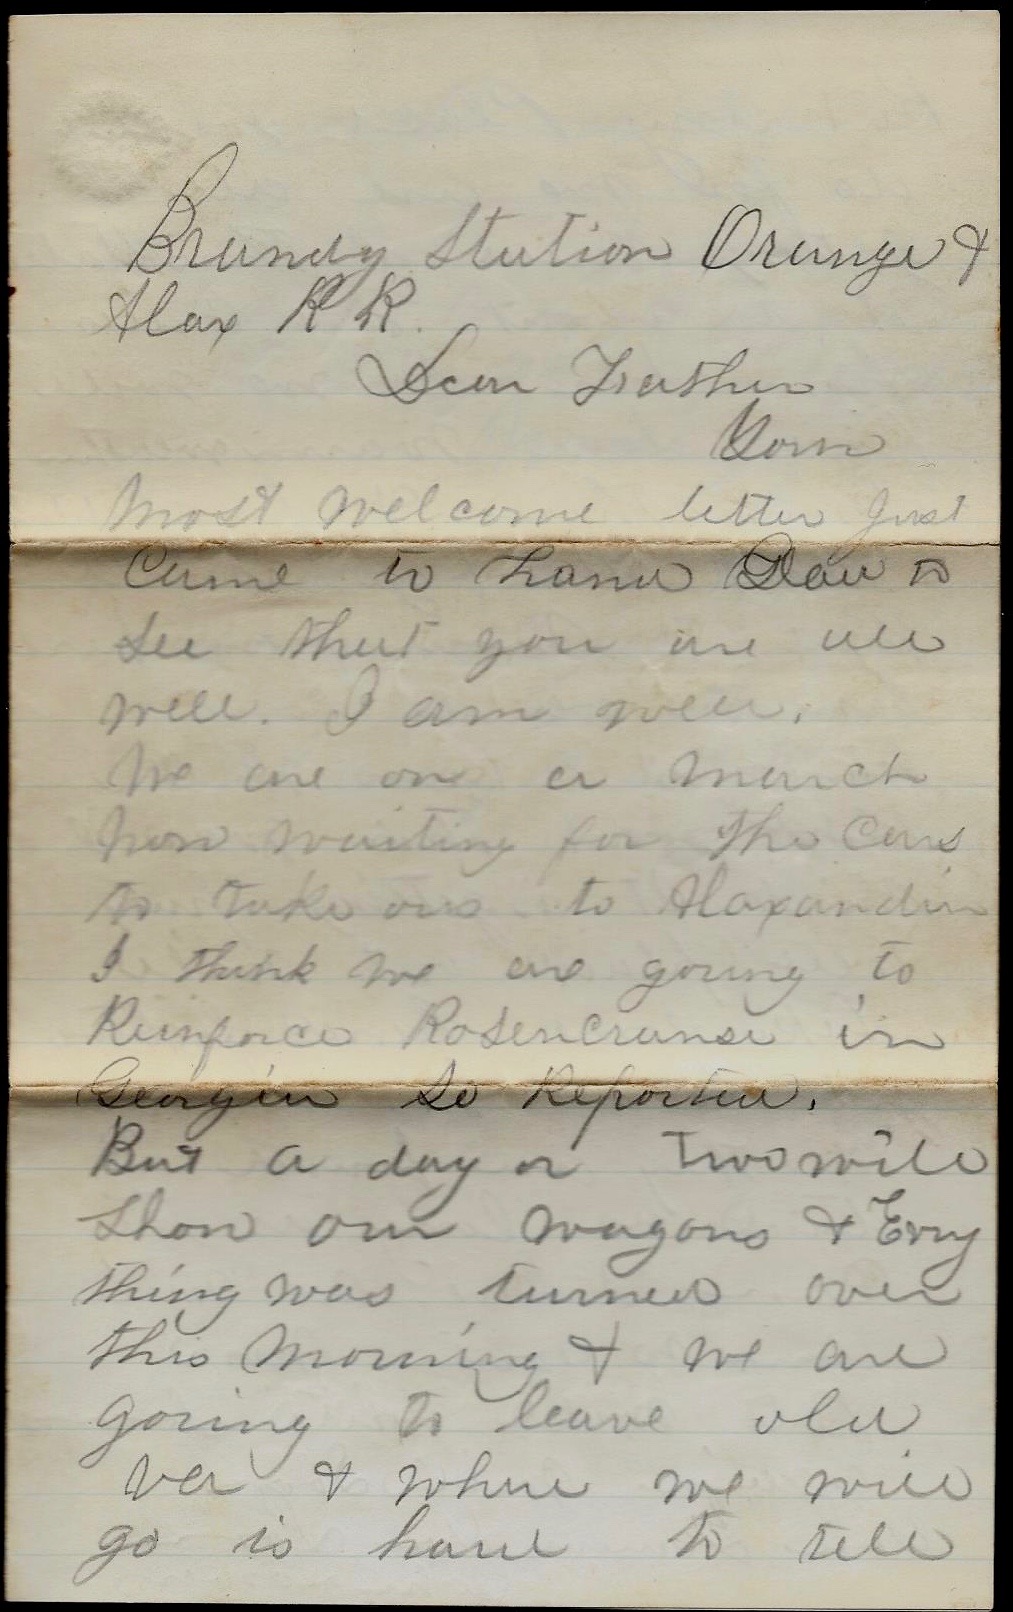 Brandy Station Orange &
Alax R R.
Dear Father
Your
most welcome letter just
Came to hand Glad to
see that you are all
well. I am well.
We are on a march
now waiting for the Cars
to take ous to Alaxandia
I think we are going to
Reinforce Rosencranse in
Georgia so Reported.
But a day or two will
show our wagons & Evry
thing was turned over
this morning & we are
going to leave old
Va & where we will
go is hard to tell